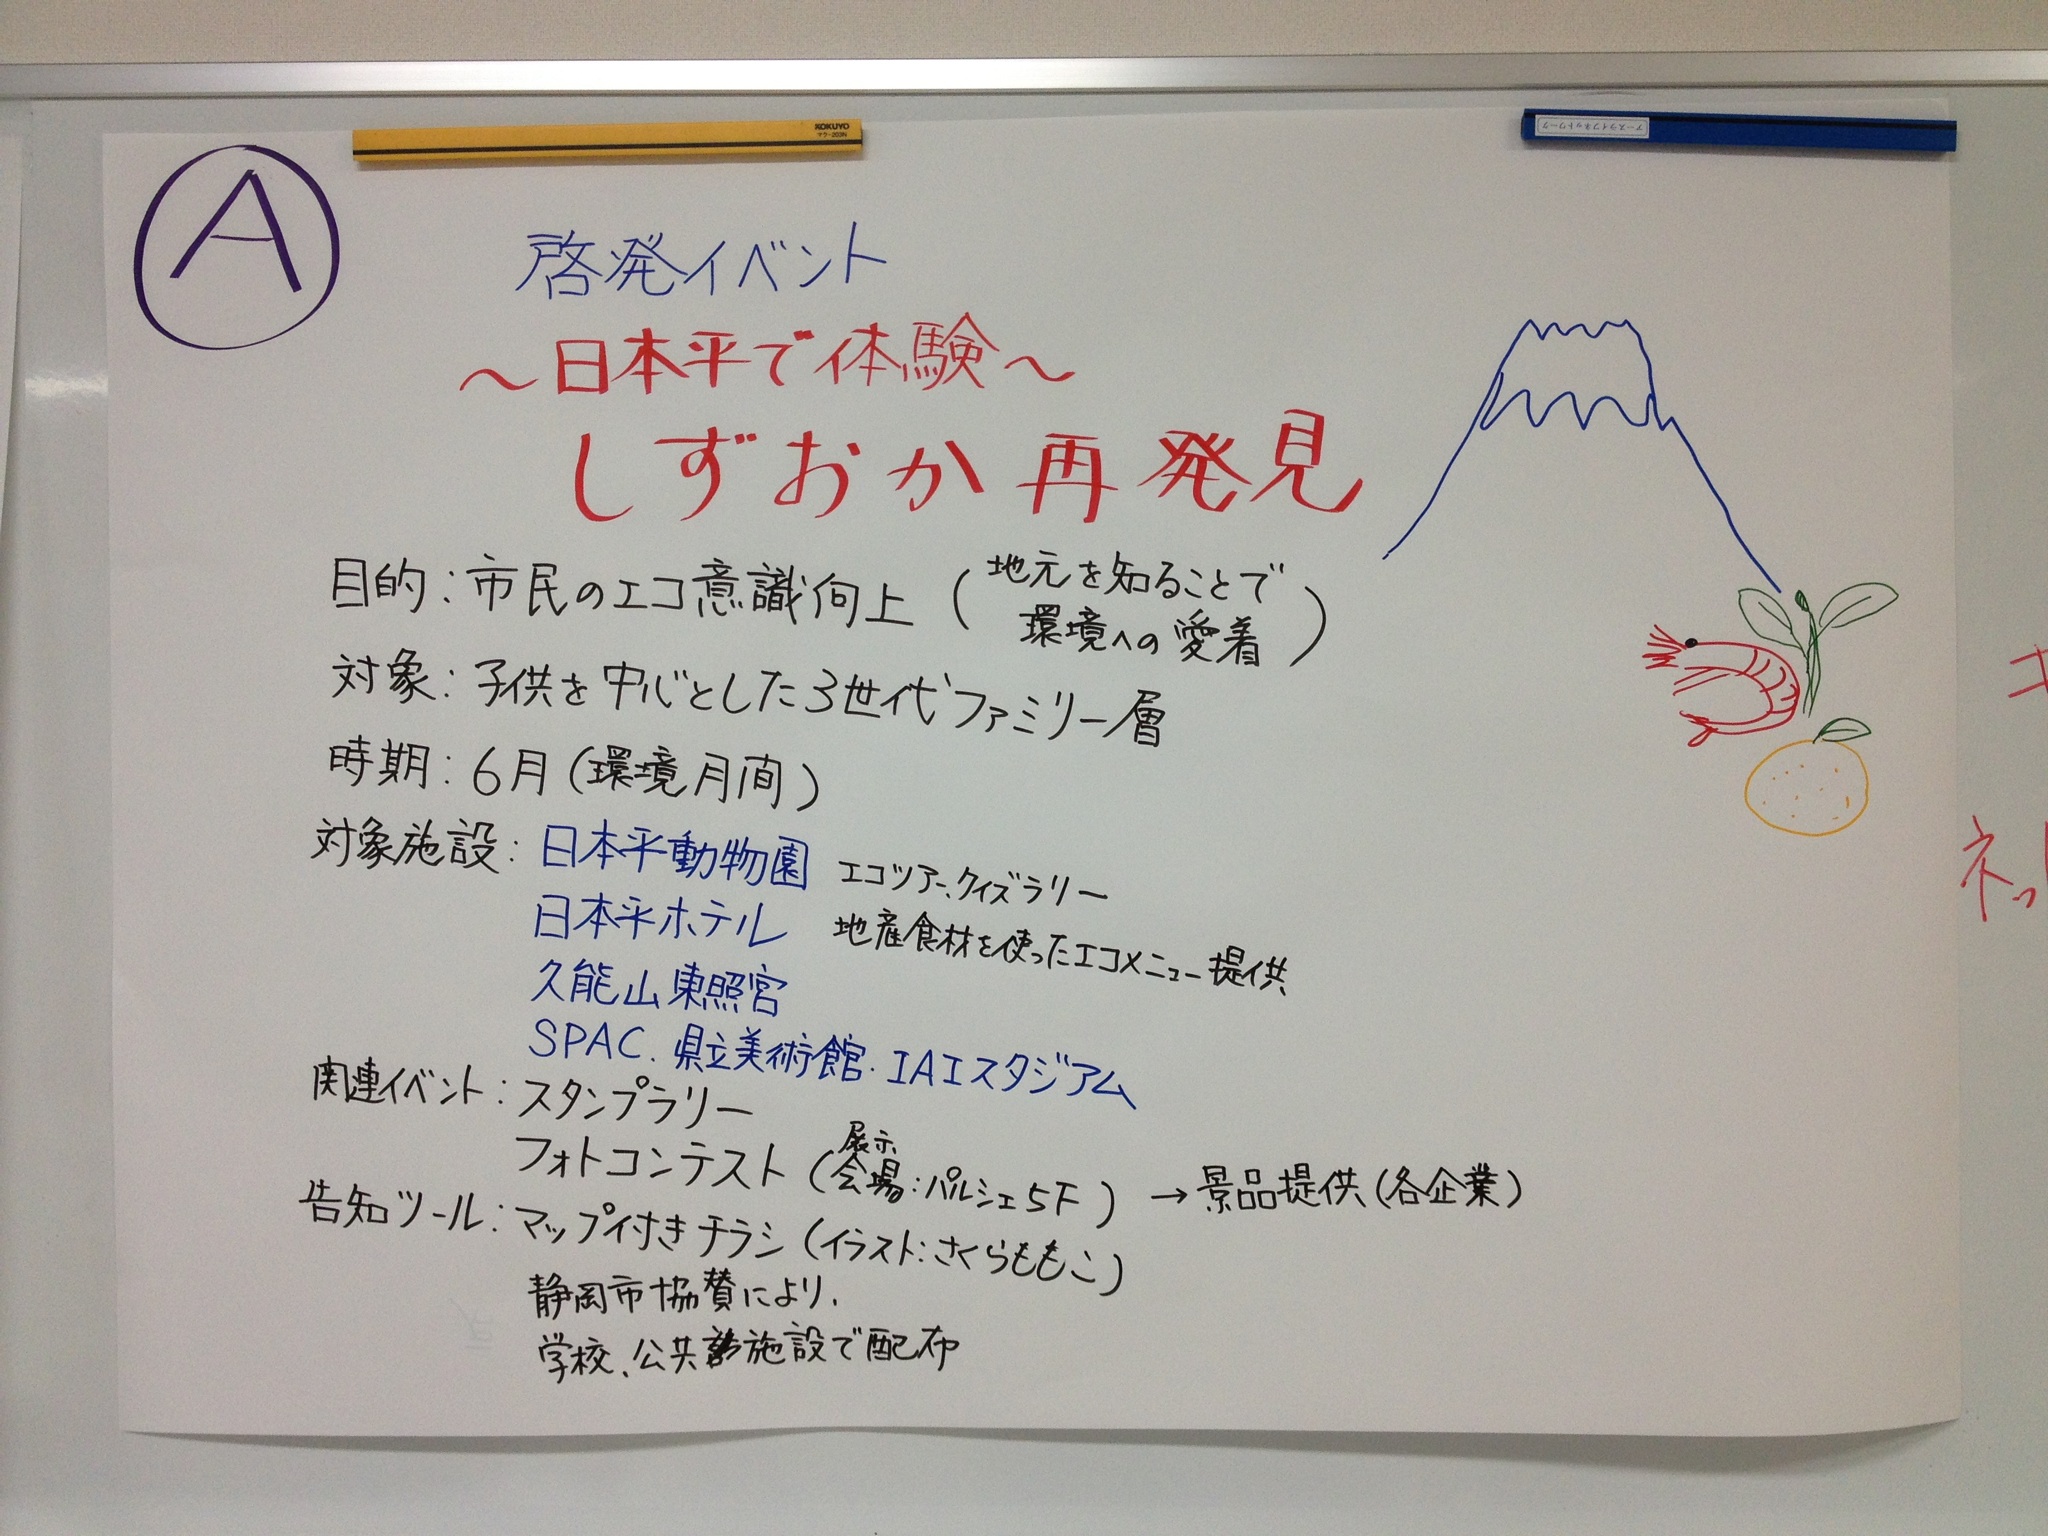 KOKUYO
マク-203N
アースライフネットワーク
A
啓発イベント
～日本平で体験～
しずおか再発見
目的：市民のエコ意識向上（地元を知ることで
環境への愛着）
対象：子供を中心とした3世代ファミリー層
時期：6月（環境月間）
対象施設：日本平動物園 エコツアー、クイズラリー
日本平ホテル 地産食材を使ったエコメニュー提供
久能山東照宮
SPAC．県立美術館．IAIスタジアム
関連イベント：スタンプラリー
フォトコンテスト（展示会場：パルシェ5F）→景品提供（各企業）
告知ツール：マップ付きチラシ（イラスト：さくらももこ）
静岡市協賛により、
学校、公共施設で配布
ネッ